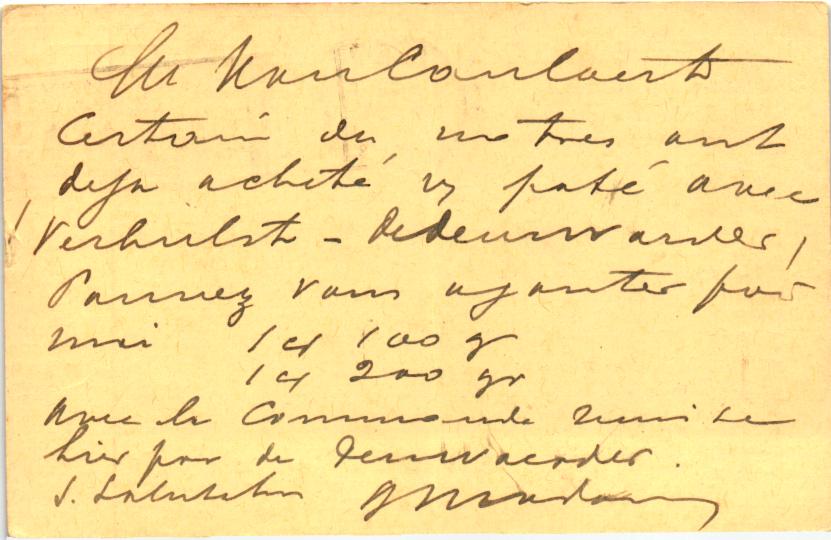 Mr Van Caulaert
Certain des notres ont
deja acheté du paté avec
Verhulst - Dedeurwaerder,
Pourriez vous ajouter pour
moi 1 cf 100 gr
1 cf 200 gr
avec la Commande remise
hier par de Deurwaerder.
S. Salutation